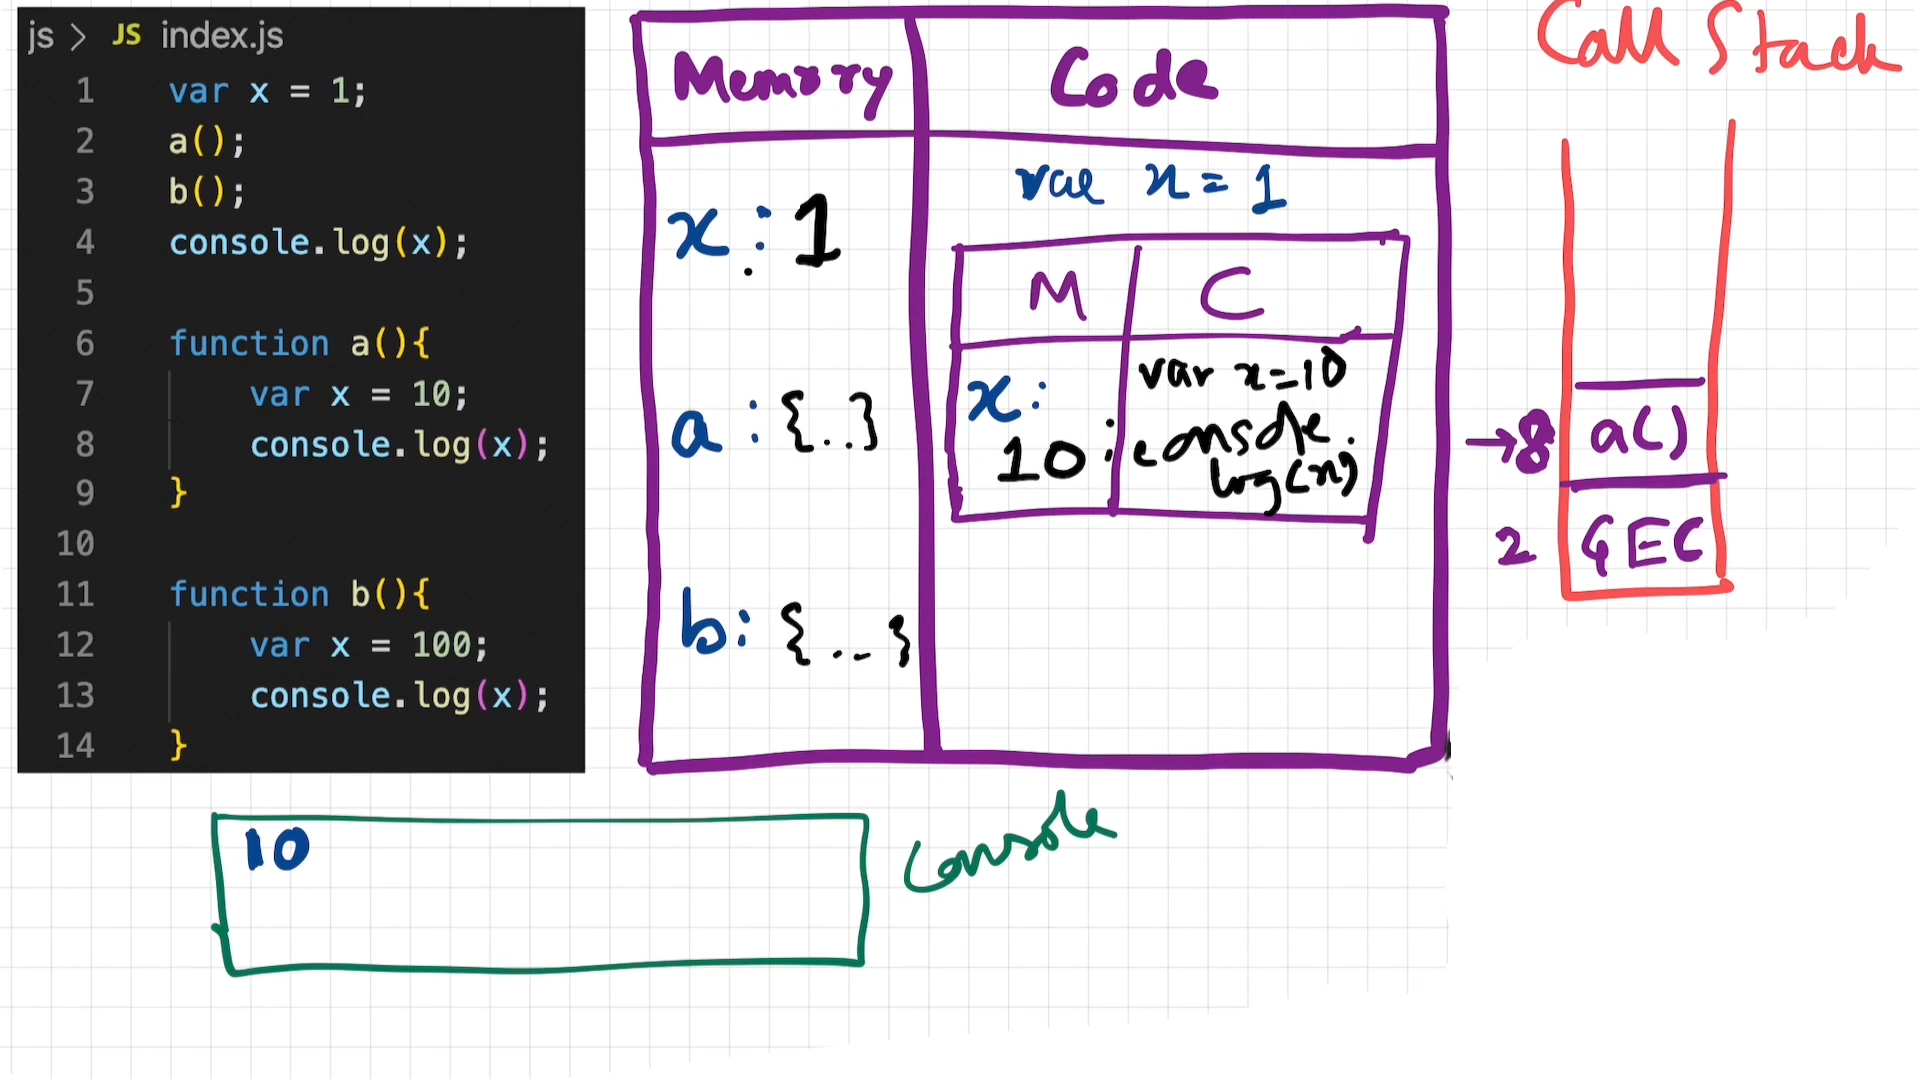 js > JS index.js
1 var x = 1;
2 a();
3 b();
4 console.log(x);
5
6 function a(){
7 var x = 10;
8 console.log(x);
9 }
10
11 function b(){
12 var x = 100;
13 console.log(x);
14 }
Memory Code
x : 1
a : {..}
b : {..}
var x = 1
M C
x :
10
var x=10
; console.
log(x)
Call Stack
→8 a()
2 GEC
10
Console